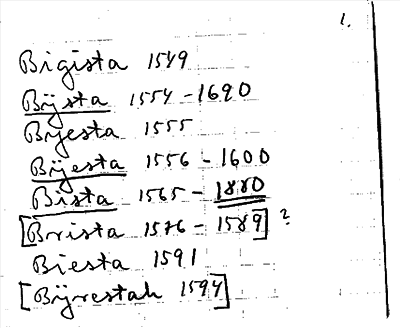 1.
Bigista 1549
Bijsta 1554 - 1690
Bijesta 1555
Bijesta 1556 - 1600
Bista 1565 - 1880
[Brista 1576 - 1589] ?
Biesta 1591
[Bijrestah 1594]